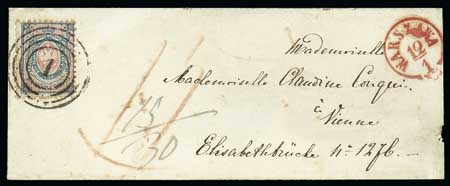 1
WARSZAWA
12/1
Mademoiselle
Mademoiselle Claudine
à
Vienne
Elisabethbrücke no 1276.